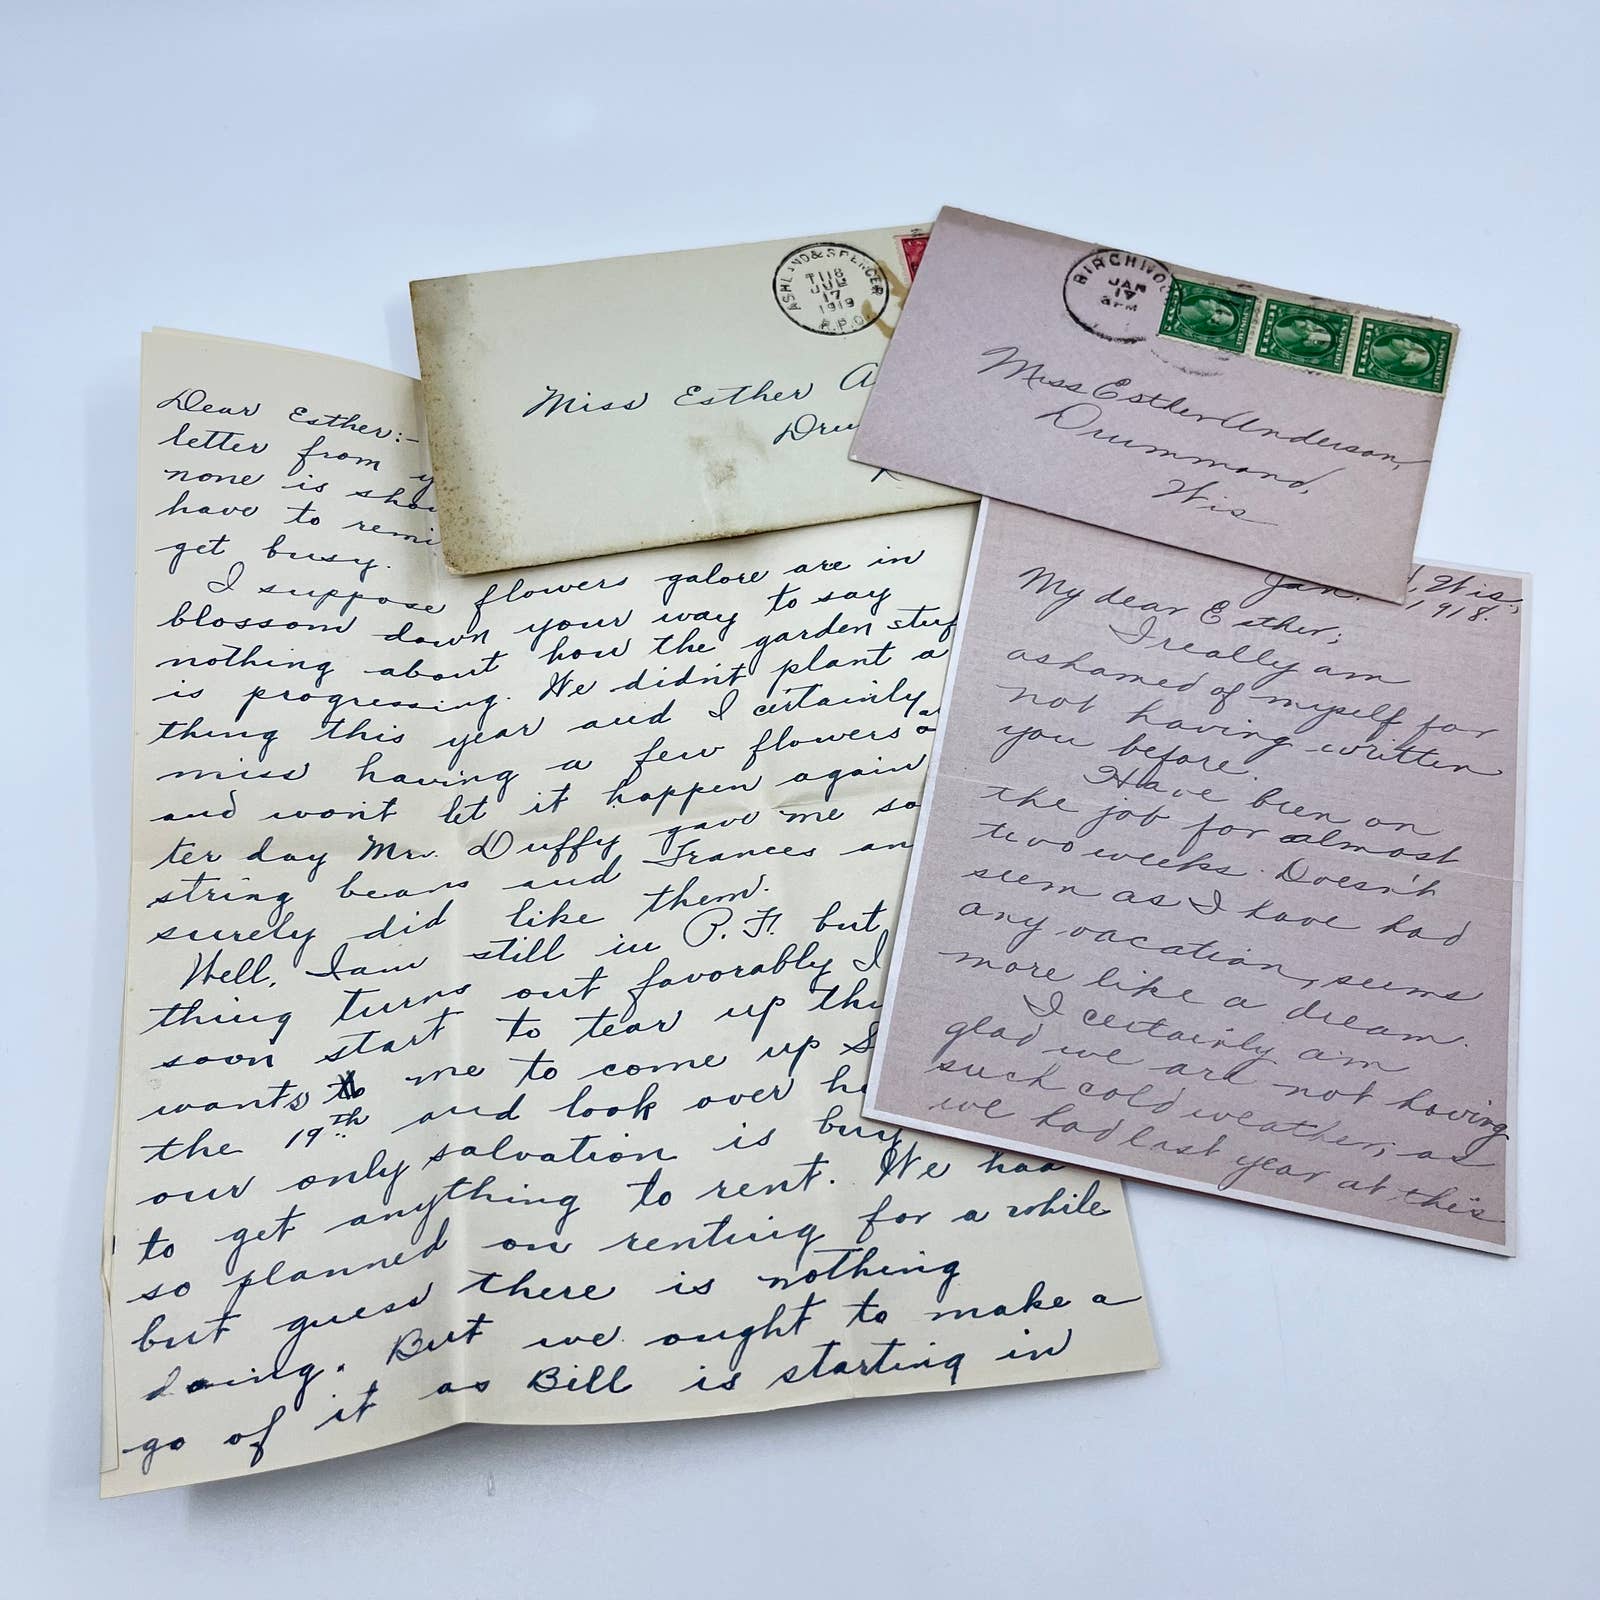 ASHLAND & SPENCER
JUL
17
1919
R.P.O.
Miss Esther A
Dru
BIRCHWOO
JAN
17
3 PM
Miss Esther Anderson,
Drummond,
Wis
Dear Esther:-
letter from y
none is sho
have to remi
get busy.
I suppose flowers galore are in
blossom down your way to say
nothing about how the garden stuf
is progressing. We didn't plant a
thing this year and I certainly
miss having a few flowers a
and won't let it happen again
ter day Mr. Duffy gave me so
string beans and Frances an
surely did like them.
Well, I am still in P. F. but
thing turns out favorably I
soon start to tear up th
wants me to come up S
the 19th and look over h
our only salvation is buy
to get anything to rent. We had
so planned on renting for a while
but guess there is nothing
doing. But we ought to make a
go of it as Bill is starting in
Wis,
Jan. 1918.
My dear Esther;
I really am
ashamed of myself for
not having written
you before.
Have been on
the job for almost
two weeks. Doesn't
seem as I have had
any vacation, seems
more like a dream.
I certainly am
glad we are not having
such cold weather, as
we had last year at this